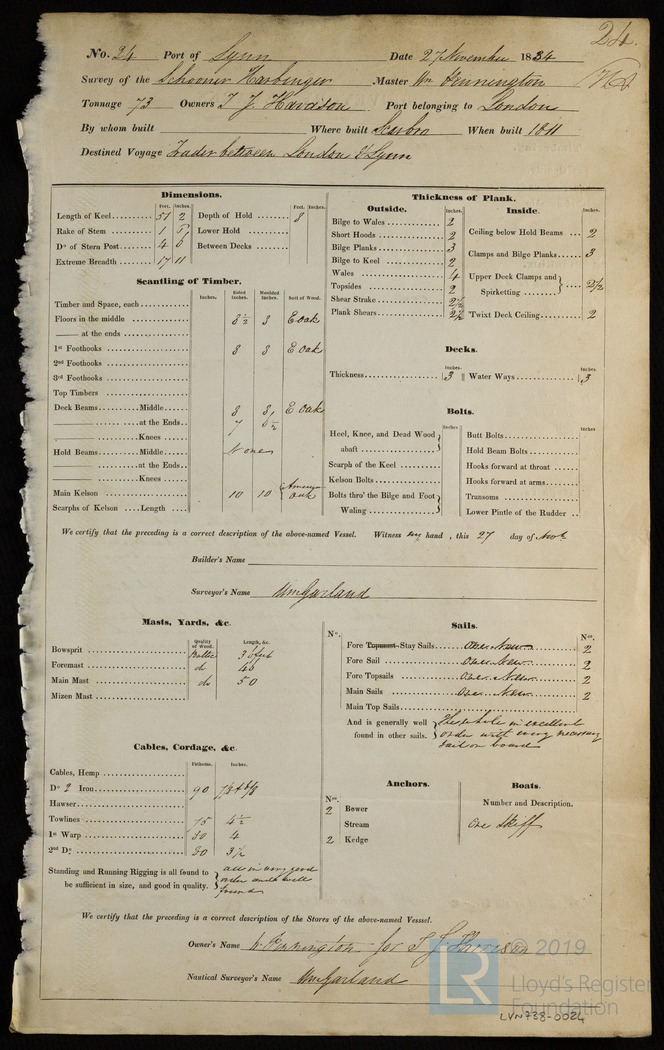 24
No. 24 Port of Lynn Date 27 November 1834
Survey of the Schooner Harbinger Master Wm Pennington
Tonnage 73 Owners T J Harrison Port belonging to London
By whom built Where built Scarbro When built 1811
Destined Voyage Trader between London & Lynn
Dimensions.
Feet. Inches.
Length of Keel 51 2
Rake of Stem 1
Do of Stern Post 4 6
Extreme Breadth 17 11
Feet. Inches.
Depth of Hold 8
Lower Hold
Between Decks
Scantling of Timber.
Inches. Sided Inches. Moulded Inches. Sort of Wood.
Timber and Space, each
Floors in the middle 8½ 8 E oak
—— at the ends
1st Foothooks 8 8 E Oak
2nd Foothooks
3rd Foothooks
Top Timbers
Deck Beams Middle 8 8 E Oak
—— at the Ends 7 6½
—— Knees
Hold Beams Middle None
—— at the Ends
—— Knees
Main Kelson 10 10 Oak
Scarphs of Kelson Length
Thickness of Plank.
Outside. Inches.
Bilge to Wales 2
Short Hoods 2
Bilge Planks 3
Bilge to Keel 2
Wales 4
Topsides 2
Shear Strake 2½
Plank Shears 2½
Inside. Inches.
Ceiling below Hold Beams 2
Clamps and Bilge Planks 3
Upper Deck Clamps and Spirketting 2½
'Twixt Deck Ceiling 2
Decks.
Inches. Inches.
Thickness 3 Water Ways 3
Bolts.
Inches Inches
Heel, Knee, and Dead Wood abaft
Scarph of the Keel
Kelson Bolts
Bolts thro' the Bilge and Foot Waling
Butt Bolts
Hold Beam Bolts
Hooks forward at throat
Hooks forward at arms
Transoms
Lower Pintle of the Rudder
We certify that the preceding is a correct description of the above-named Vessel. Witness my hand, this 27 day of Novr
Builder's Name
Surveyor's Name Wm Garland
Masts, Yards, &c.
Quality of Wood. Length, &c.
Bowsprit Baltic 36 feet
Foremast do 48
Main Mast do 50
Mizen Mast
Sails.
No. Nos.
Fore Topmast Stay Sails One New 2
Fore Sail One New 2
Fore Topsails One New 2
Main Sails One New 2
Main Top Sails
And is generally well found in other sails. The whole in excellent
order with every necessary
sail on board
Cables, Cordage, &c.
Fathoms. Inches.
Cables, Hemp
Do 2 Iron 90 7/8 & 6/8
Hawser
Towlines 75 4½
1st Warp 80 4
2nd Do 80 3½
Standing and Running Rigging is all found to be sufficient in size, and good in quality. all in very good
order and well
found
Anchors.
Nos.
2 Bower
Stream
2 Kedge
Boats.
Number and Description.
One Skiff
We certify that the preceding is a correct description of the Stores of the above-named Vesssel.
Owner's Name W Pennington for T J Harrison
Nautical Surveyor's Name Wm Garland
LR © 2019
Lloyd's Register
Foundation
LVN738-0024